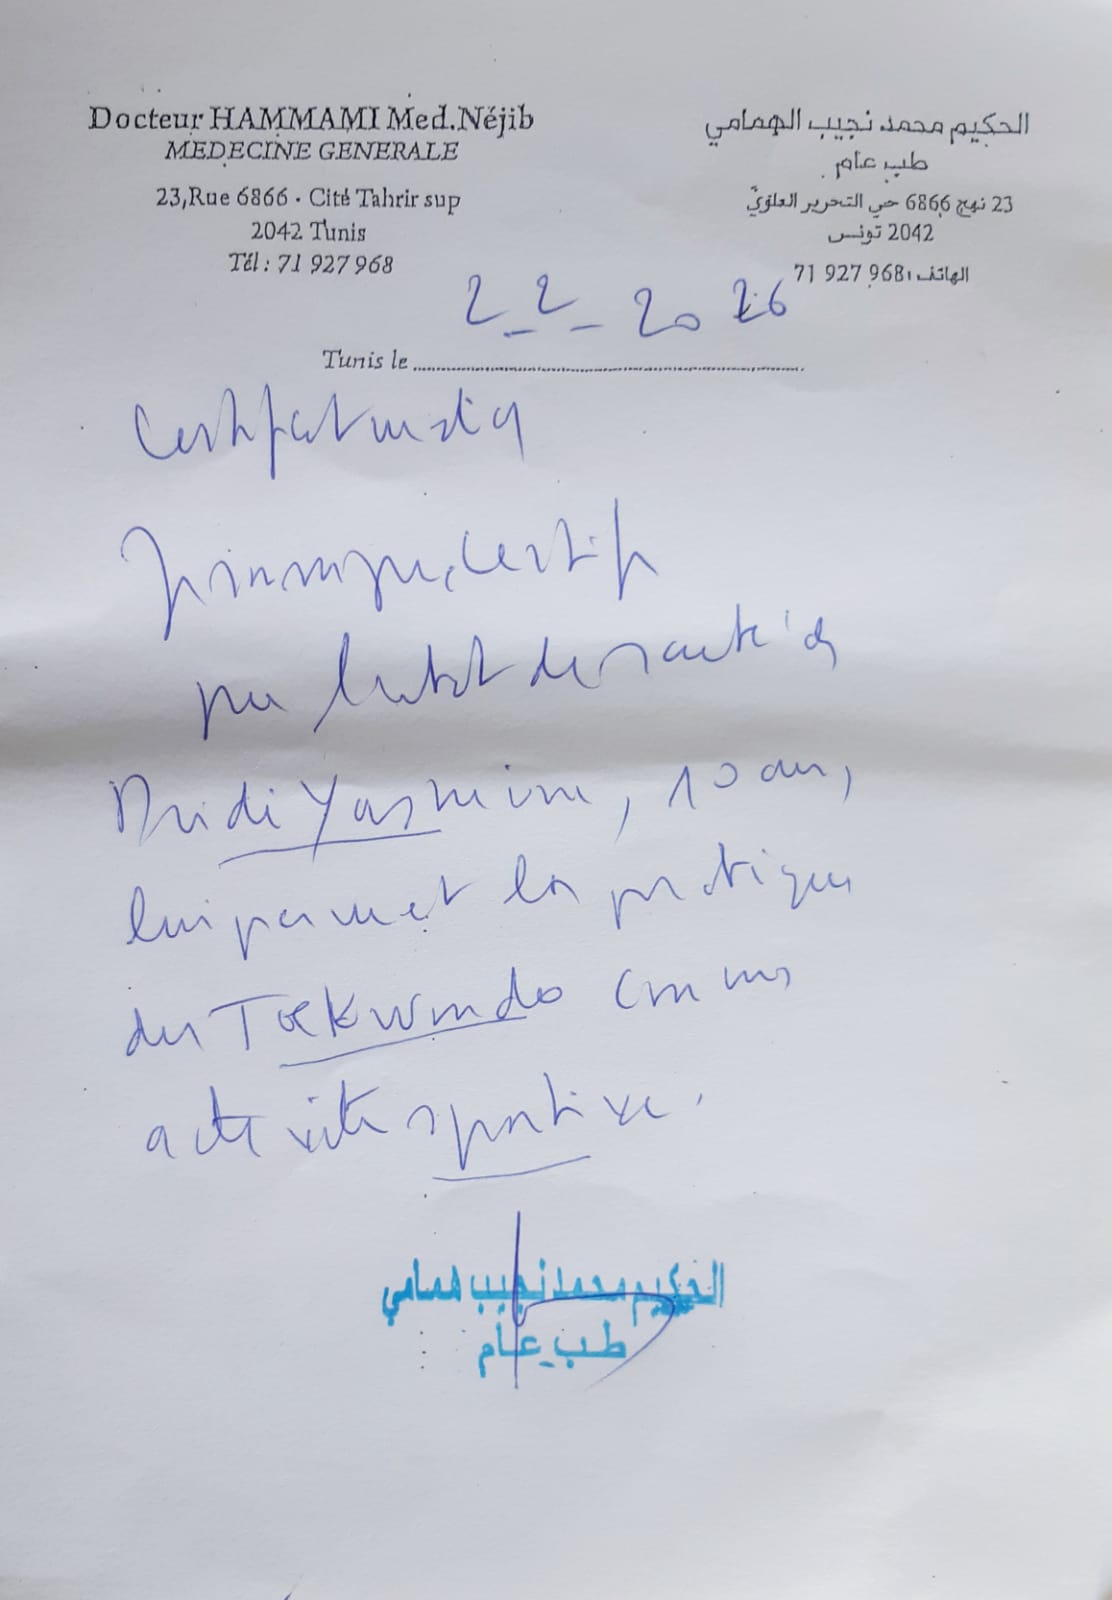 Docteur HAMMAMI Med.Néjib
MEDECINE GENERALE
23,Rue 6866 - Cité Tahrir sup
2042 Tunis
Tél : 71 927 968
الحكيم محمد نجيب الهمامي
طب عام
23 نهج 6866 حي التحرير العلوي
2042 تونس
الهاتف: 71 927 968
2-2-2026
Tunis le
Certificat médical
certifie
que l'état de santé de
Dridi Yasmine, 10 ans,
lui permet la pratique
du Taekwondo comme
activité sportive.
الحكيم محمد نجيب همامي
طب عام